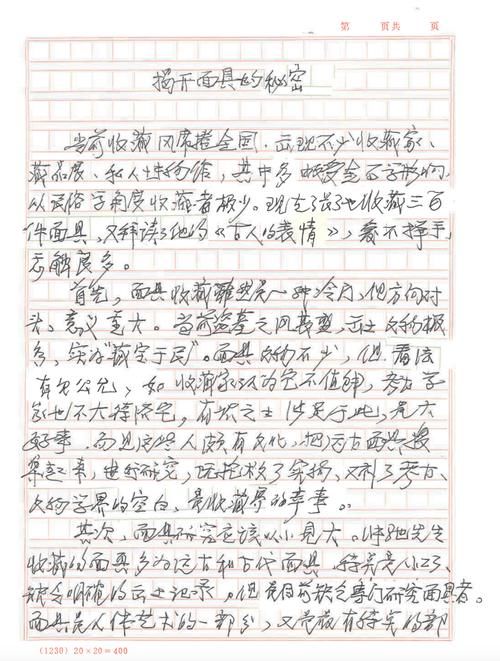 第 页共 页
揭开面具的秘密
当前收藏风席捲全国，出现不少收藏家、
藏品展、私人博物馆，其中多
从民俗学角度收藏者极少。现在了其收藏三百
件面具，又拜读了他的《古人的表情》，
了解良多。
首先，面具收藏虽然是一种冷门，但方向对
头，意义重大。当前盗墓之风甚烈，出土文物极
多，实为“藏宝于民”。面具文物不少，但看法
有欠公允，如收藏家认为它不值钱，考古学
家也不太择它，有识之士涉足于此，是大
好事。而且这些人颇有文化，把远古面具搜
集起来，进行研究，既抢救了宝物，又补了考古、
文物学界的空白，是收藏界的幸事。
其次，面具研究应该以小见大。先生
收藏的面具多为远古和古代面具，特别是小
缺乏明确的出土记录。但是目前缺乏专门研究面具者。
面具是人体艺术的一部分，又是最有特点的部
(1230) 20×20=400